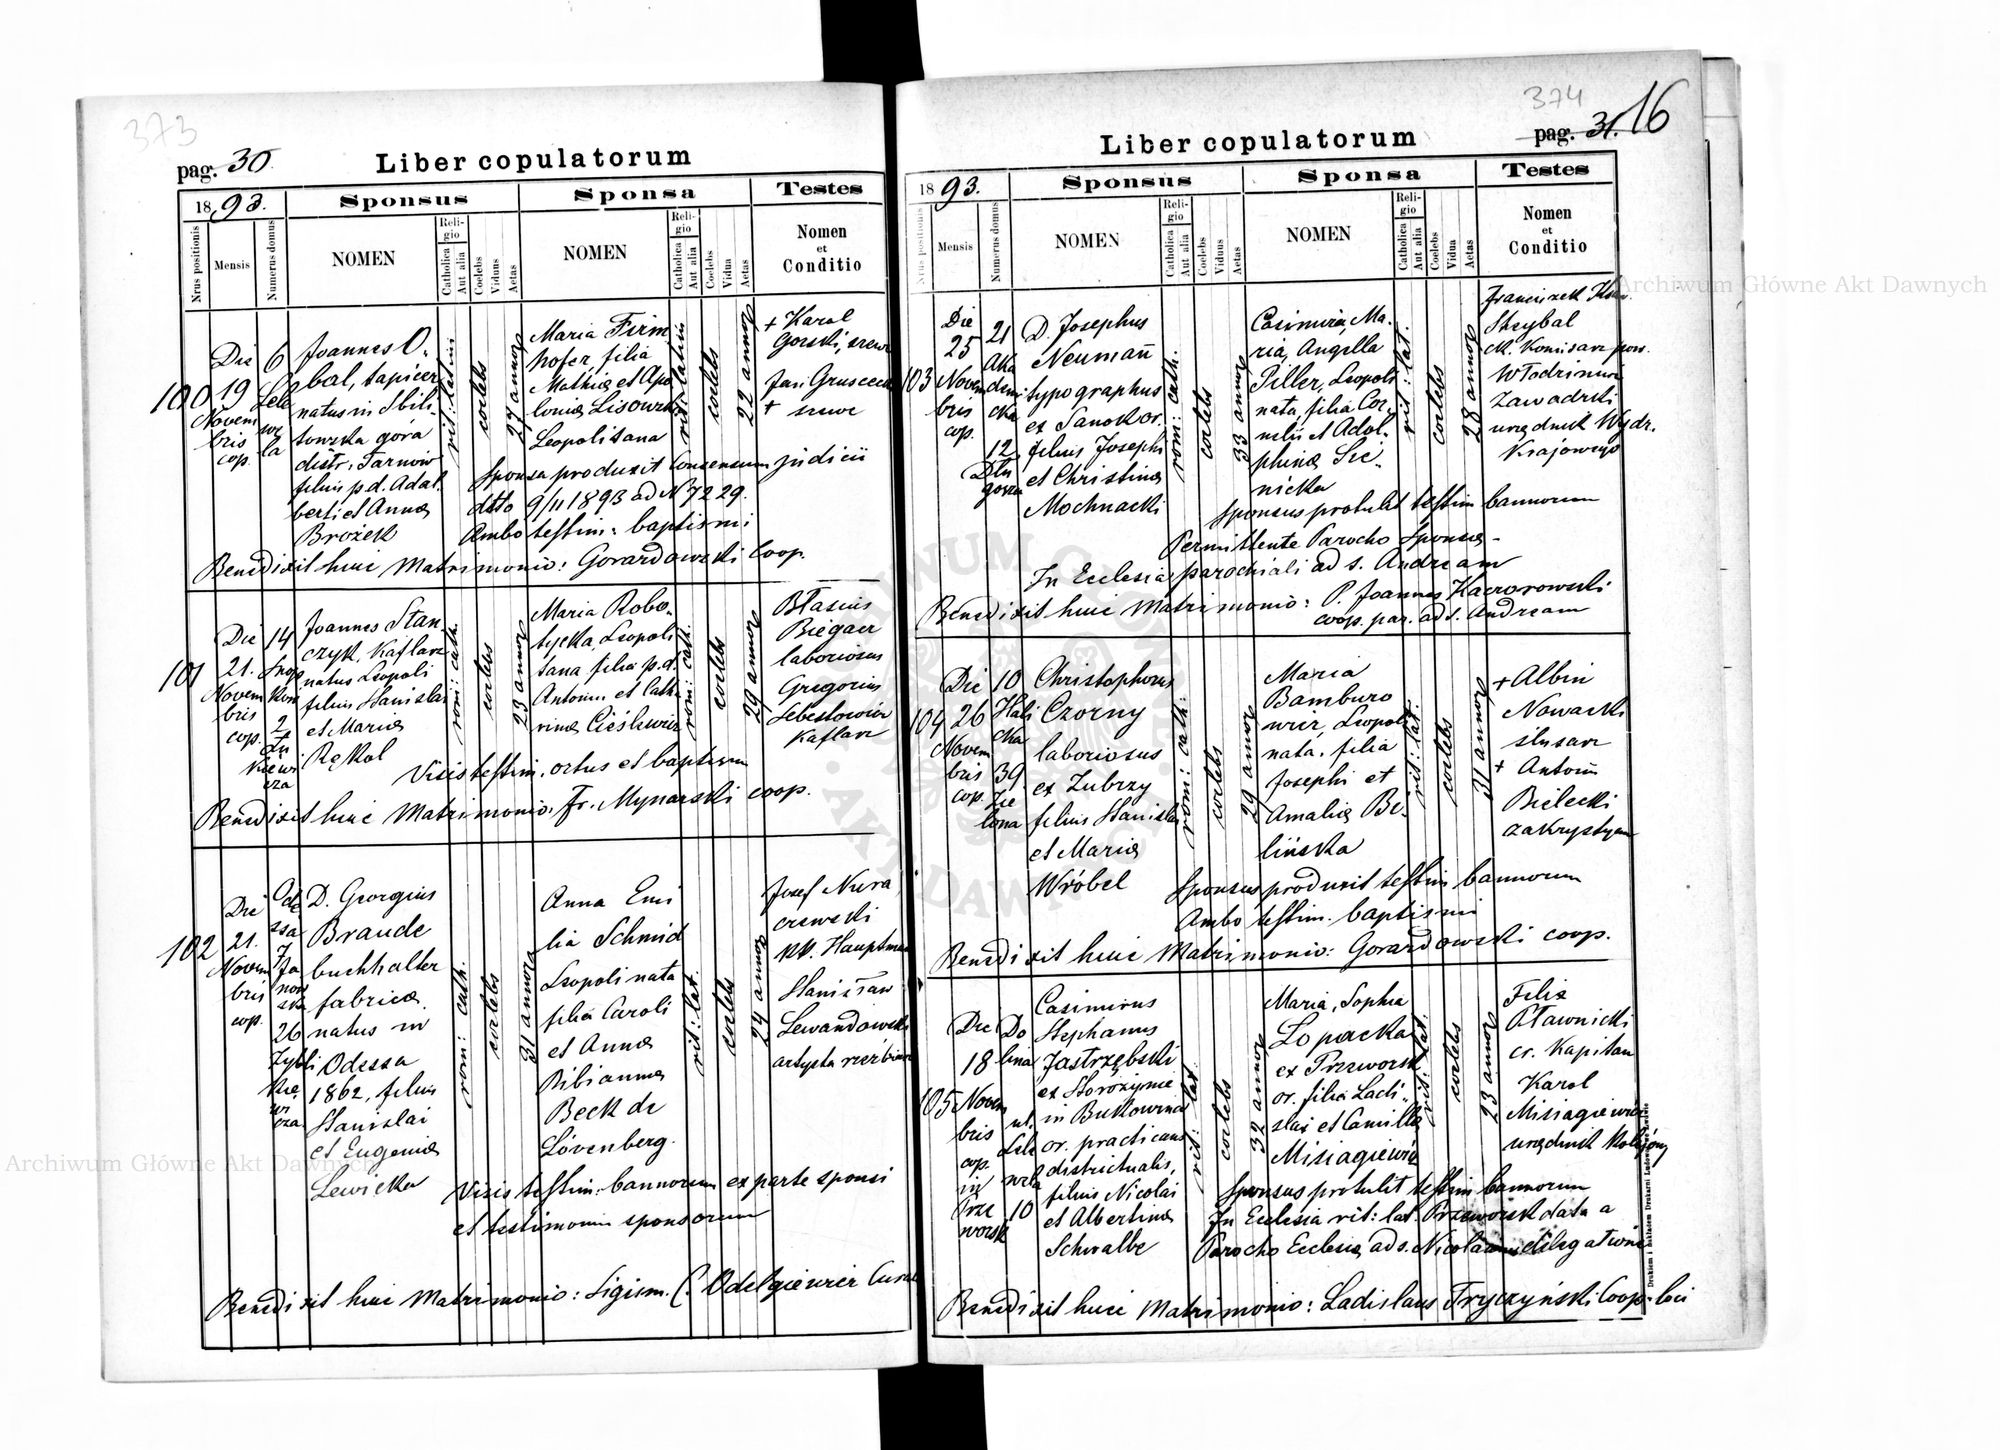 373
pag. 30.
Liber copulatorum
1893.
Sponsus
Sponsa
Testes
Nrus positionis
Mensis
Numerus domus
NOMEN
Religio
Catholica
Aut alia
Coelebs
Viduus
Aetas
NOMEN
Religio
Catholica
Aut alia
Coelebs
Vidua
Aetas
Nomen
et
Conditio
100
Die
19
Novem
bris
cop.
6
Lele
we
la
Joannes O.
bal, tapicer
natus in Zbili
towska góra
distr. Tarnów
filius p.d. Adal.
berti et Annæ
Brożek
rit: latini
coelebs
29 annor
Maria Firm
hofer, filia
Mathiæ et Apo
loniæ Lisowska
Leopolitana
rit: latini
coelebs
22 annor
+ Karol
Gorski, szewc
+ szewc
Sponsa produxit Consensum judicii
ddto 9/11 1893 ad N 7229.
Ambo testim: baptismi
Benedixit huic Matrimonio: Gorazdowski Coop.
101
Die
21.
Novem
bris
cop.
14
Snop
kow
2
Zu
liewi
cza
Joannes Stan
czyk, Kaflarz
natus Leopoli
filius Stanislai
et Mariæ
Rękol
rom: cath.
coelebs
23 annor
Maria Robo.
tycka, Leopoli
tana filia p.d.
Antonii et Catha
rinæ Cieślewicz
rom: cath.
coelebs
29 annor
Błasius
Biegacz
laboriosus
Gregorius
Sebestowicz
Kaflarz
Visis testim. ortus et baptism
Benedixit huic Matrimonio: Fr. Mynarski coop.
102
Die
21.
Novem
bris
cop.
Ode
ssa
7
Ja
now
ska
26
Zybli
kie
wi
cza
D. Georgius
Braude
buchhalter
fabricæ
natus in
Odessa
1862, filius
Stanislai
et Eugeniæ
Lewicka
rom: cath.
coelebs
31 annor
Anna Emi
lia Schmid
Leopoli nata
filia Caroli
et Annæ
Bibiannæ
Beck de
Lövenberg.
rit: lat.
coelebs
24 annor
Jozef Nura
czewski
KK. Hauptman
Stanisław
Lewandowski
artysta rzeźbiarz
Visis testim: bannorum ex parte sponsi
et testimoniis sponsorum
Benedixit huic Matrimonio: Sigism. C. Odelgiewicz Curat
374
pag. 31. 16
Liber copulatorum
1893.
Sponsus
Sponsa
Testes
Nrus positionis
Mensis
Numerus domus
NOMEN
Religio
Catholica
Aut alia
Coelebs
Viduus
Aetas
NOMEN
Religio
Catholica
Aut alia
Coelebs
Vidua
Aetas
Nomen
et
Conditio
103
Die
25
Novem
bris
cop.
21
Aka
demi
cka
12
Dłu
gosza
D. Josephus
Neumañ
typographus
ex Sanok or.
filius Josephi
et Christinæ
Mochnacki
rom: cath.
coelebs
33 annor
Casimira, Ma.
ria, Angella
Piller, Leopoli
nata, filia Cor.
nelii et Adol.
phinæ Sie.
nicka
rit: lat.
coelebs
28 annor
Franciszek
Skrybal
Komisarz pow.
Włodzimirz
Zawadzki
urzędnik Wydz.
Krajowego
Sponsus protulit testim bannorum
Permittente Parocho Sponsæ
In Ecclesia parochiali ad s. Andream
Benedixit huic Matrimonio: P. Joannes Kaczorowski
coop. par. ad s. Andream
104
Die
26
Novem
bris
cop.
10
Hali
cka
39
Zie
lona
Christophorus
Czorny
laboriosus
ex Zubrzy
filius Stanislai
et Mariæ
Wróbel
rom: cath.
coelebs
29 annor
Maria
Bamburo
wicz, Leopoli
nata, filia
Josephi et
Amaliæ Be.
lińska
rit: lat.
coelebs
31 annor
+ Albin
Nowacki
ślusarz
+ Antoni
Bielecki
zakrystyan
Sponsus produxit testim bannorum
Ambo testim. baptismi
Benedixit huic Matrimonio: Gorazdowski coop.
105
Die
18
Novem
bris
cop.
in
Prze
worsk
Do
lina
ul.
Lele
wela
10
Casimirus
Stephanus
Jastrzębski
ex Storożynie
in Bukowina
or. practicans
districtualis,
filius Nicolai
et Albertinæ
Schwalbe
rit: lat.
coelebs
32 annor
Maria, Sophia
Łopacka
ex Przeworsk
or. filia Ladi.
slai et Camillæ
Misiągiewicz
rit: lat.
coelebs
23 annor
Felix
Pławnicki
cr. Kapitan
Karol
Misiągiewicz
urzędnik kolejowy
Sponsus protulit testim bannorum
In Ecclesia rit: lat. Przeworsk data a
Parocho Ecclesiæ ad s. Nicolaum delegatione
Benedixit huic Matrimonio: Ladislaus Tryczyński Coop. loci
Archiwum Główne Akt Dawnych
Archiwum Główne Akt Dawnych